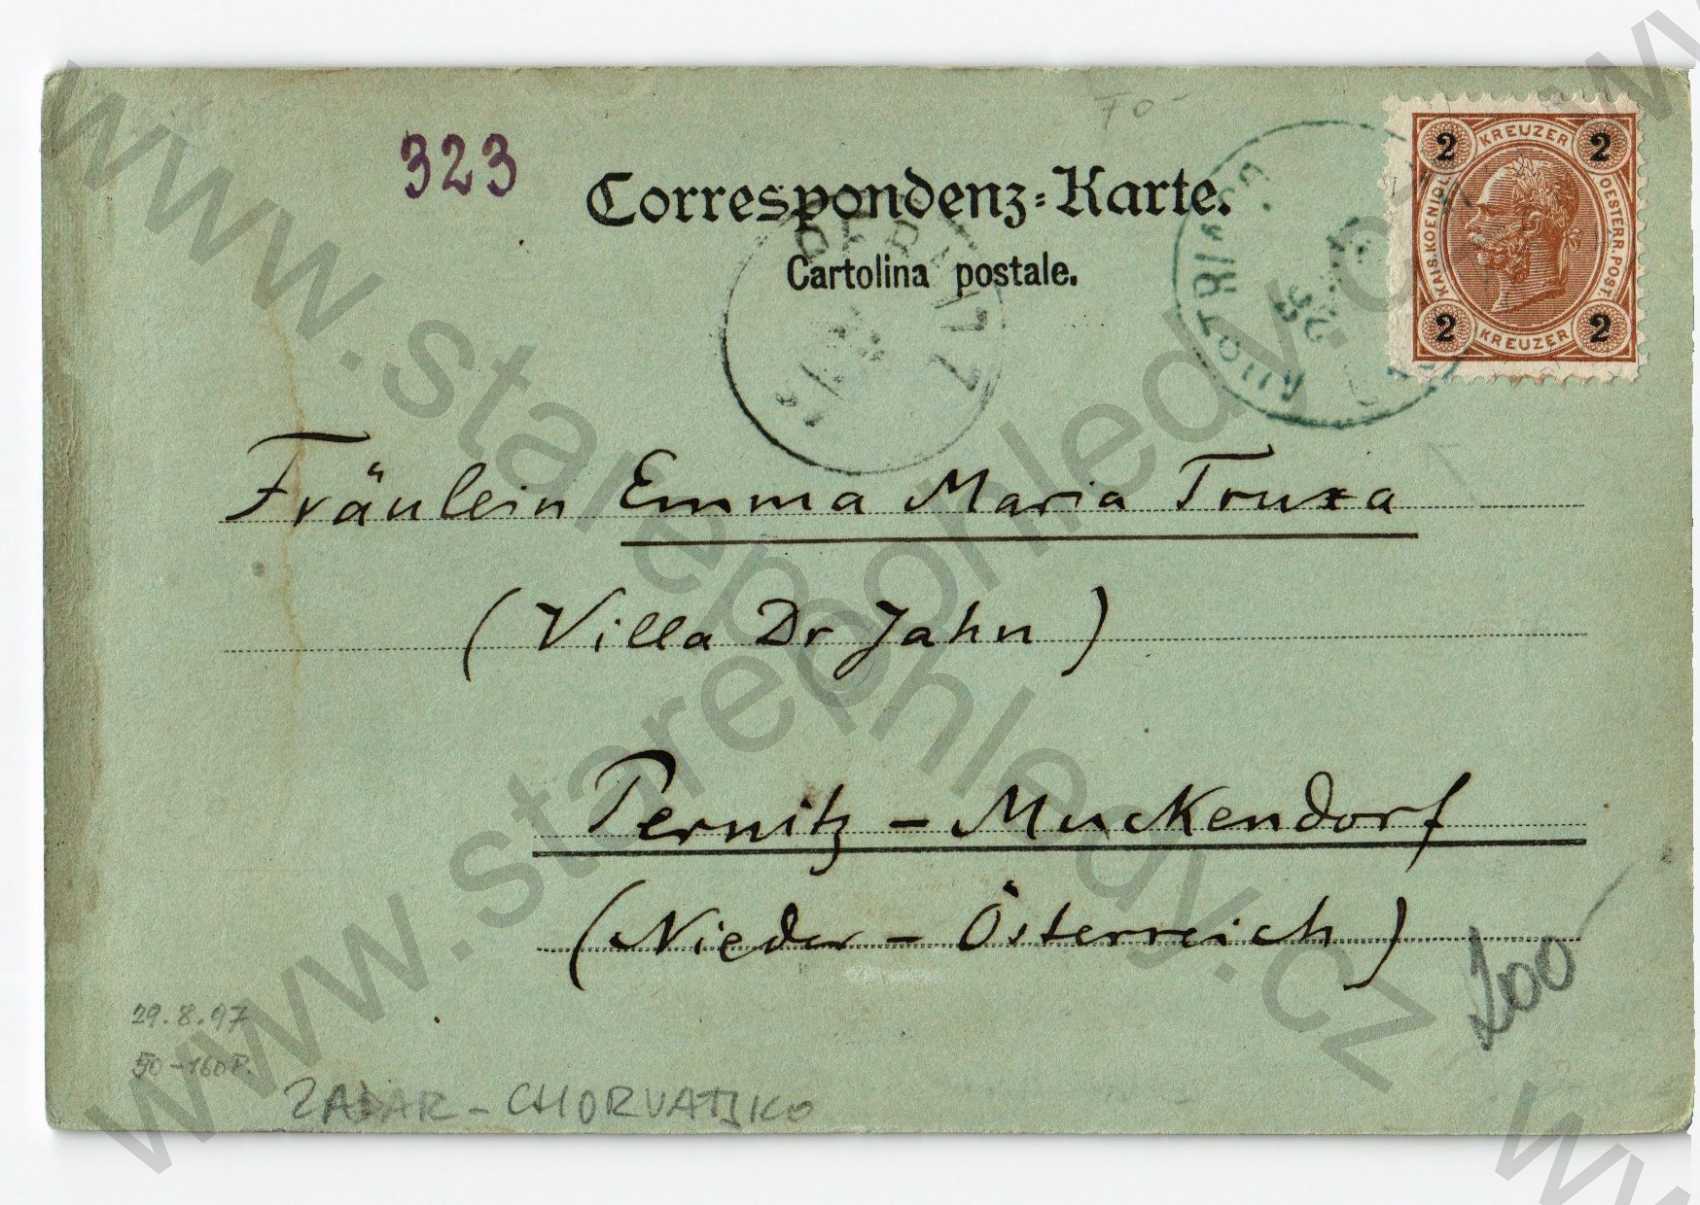 70-
323
Correspondenz-Karte.
Cartolina postale.
KREUZER
2 2
KAIS. KOENIGL. OESTERR. POST.
2 2
KREUZER
PERNITZ
Fräulein Emma Maria Truxa
(Villa Dr Jahn)
Pernitz - Muckendorf
(Nieder - Österreich)
200
29.8.97
50-160 P.
ZADAR - CHORVATSKO
www.starepohledy.cz
www.starepohledy.cz